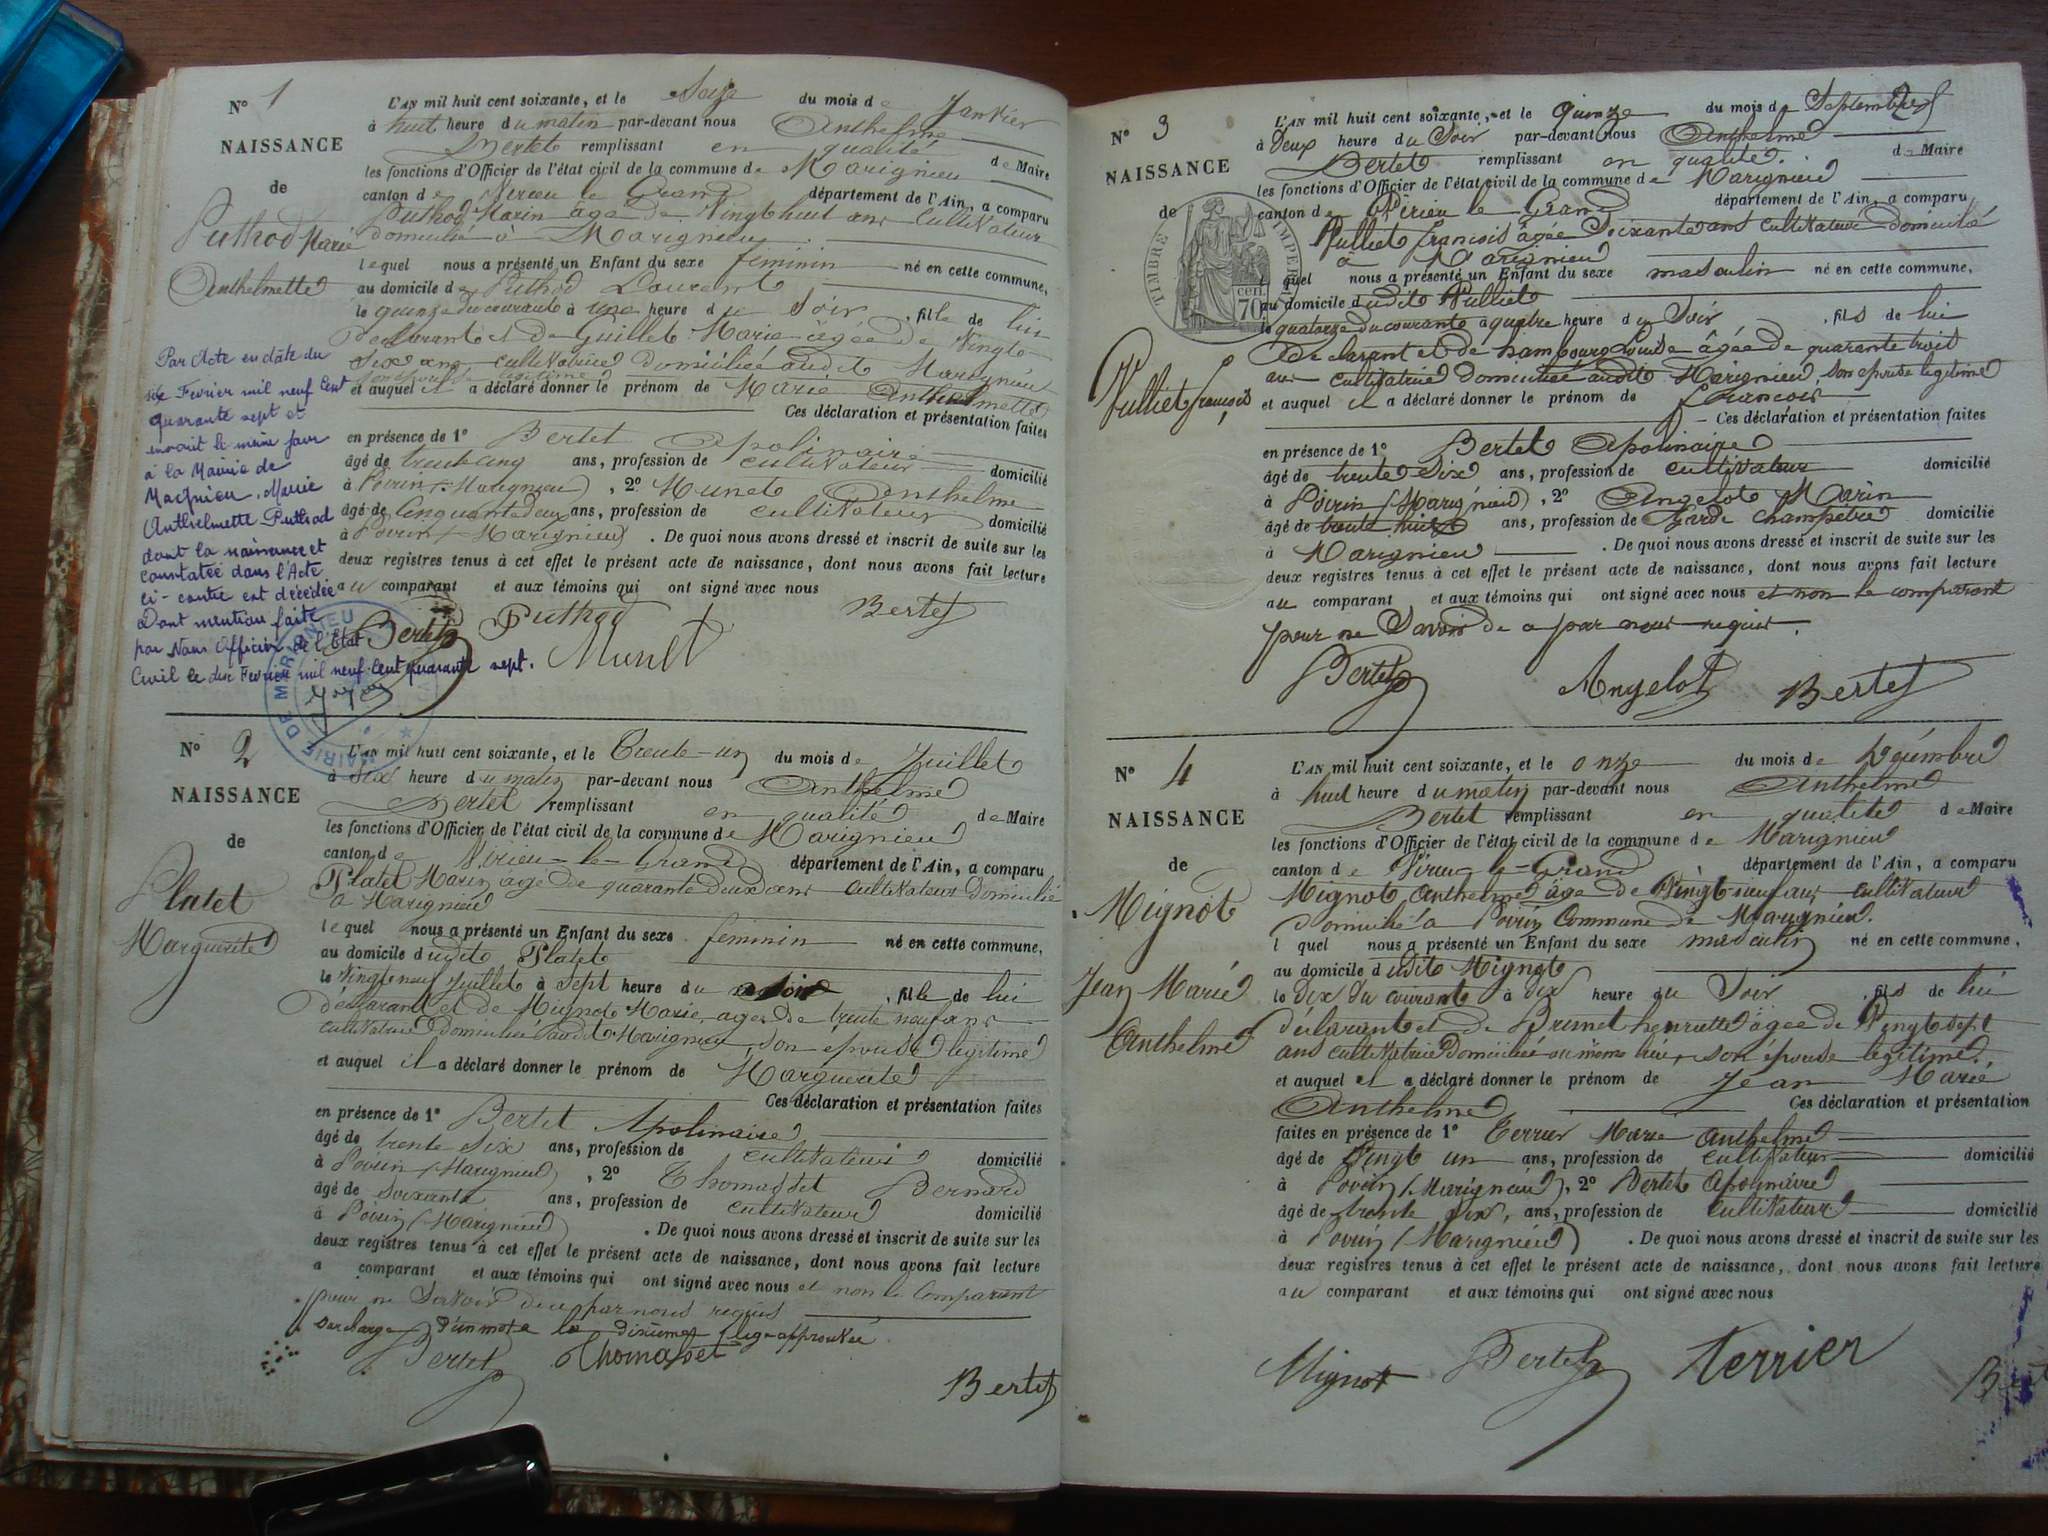 N° 1
NAISSANCE
de
Puthod Marie
Anthelmette
L'AN mil huit cent soixante, et le Seize du mois de Janvier
à huit heure du matin par-devant nous Anthelme
Bertet remplissant en qualité de Maire
les fonctions d'Officier de l'état civil de la commune de Marignieu
canton de Virieu le Grand département de l'Ain, a comparu
Puthod Marin âgé de Vingt huit ans Cultivateur
domicilié à Marignieu
lequel nous a présenté un Enfant du sexe féminin né en cette commune,
au domicile de Puthod Laurent
le quinze du courant à une heure du Soir, fille de lui
déclarant et de Guillet Marie âgée de Vingt
Six ans cultivatrice domiciliée audit Marignieu
son épouse légitime
et auquel il a déclaré donner le prénom de Marie Anthelmette
Ces déclaration et présentation faites
en présence de 1° Bertet Apolinaire
âgé de trente cinq ans, profession de cultivateur domicilié
à Povrin (Marignieu), 2° Munet Anthelme
âgé de Cinquante deux ans, profession de cultivateur domicilié
à Povrin (Marignieu). De quoi nous avons dressé et inscrit de suite sur les
deux registres tenus à cet effet le présent acte de naissance, dont nous avons fait lecture
au comparant et aux témoins qui ont signé avec nous
Bertet Puthod Munet Bertet
Par Acte en date du
six Fevrier mil neuf Cent
quarante sept et
à la Mairie de
Marignieu, Marie
Anthelmette Puthod
dont la naissance et
constatée dans l'Acte
ci-contre est décédée
Dont mention faite
par Nous Officier de l'Etat
Civil le dix Fevrier mil neuf Cent quarante sept.
MAIRIE DE MARIGNIEU
N° 2
NAISSANCE
de
Platet
Marguerite
L'AN mil huit cent soixante, et le Trente-un du mois de Juillet
à Six heure du matin par-devant nous Anthelme
Bertet remplissant en qualité de Maire
les fonctions d'Officier de l'état civil de la commune de Marignieu
canton de Virieu-le-Grand département de l'Ain, a comparu
Platet Marin âgé de quarante deux ans cultivateur Domicilié
à Marignieu
lequel nous a présenté un Enfant du sexe féminin né en cette commune,
au domicile dudit Platet
le Vingt neuf Juillet à Sept heure du Soir, fille de lui
déclarant et de Mignot Marie agée de trente neuf ans
cultivatrice domiciliée audit Marignieu, Son epouse légitime
et auquel il a déclaré donner le prénom de Marguerite
Ces déclaration et présentation faites
en présence de 1° Bertet Apolinaire
âgé de trente Six ans, profession de cultivateur domicilié
à Povrin (Marignieu), 2° Thomasset Bernard
âgé de Soixante ans, profession de cultivateur domicilié
à Povrin (Marignieu). De quoi nous avons dressé et inscrit de suite sur les
deux registres tenus à cet effet le présent acte de naissance, dont nous avons fait lecture
a comparant et aux témoins qui ont signé avec nous et non le Comparant
pour ne Savoir de ce par nous requis
Surcharge d'un mot a la dixieme lige approuvée
Bertet Thomasset Bertet
N° 3
NAISSANCE
de
Vulliet françois
TIMBRE IMPERIAL
70 cen
L'AN mil huit cent soixante, et le quinze du mois de Septembre
à Deux heure du Soir par-devant nous Anthelme
Bertet remplissant en qualité de Maire
les fonctions d'Officier de l'état civil de la commune de Marignieu
canton de Virieu le Grand département de l'Ain, a comparu
Vulliet françois âgée Soixante ans Cultivateur domicilié
à Marignieu
l quel nous a présenté un Enfant du sexe masculin né en cette commune,
au domicile dudit Vulliet
le quatorze du courant à quatre heure du Soir, fils de lui
déclarant et de hambourg Louise âgée de quarante trois
ans cultivatrice domiciliée audit Marignieu, Son epouse legitime
et auquel il a déclaré donner le prénom de françois
Ces déclaration et présentation faites
en présence de 1° Bertet Apolinaire
âgé de trente Six ans, profession de cultivateur domicilié
à Povrin (Marignieu), 2° Angelot Marin
âgé de trente huit ans, profession de Garde champêtre domicilié
à Marignieu. De quoi nous avons dressé et inscrit de suite sur les
deux registres tenus à cet effet le présent acte de naissance, dont nous avons fait lecture
au comparant et aux témoins qui ont signé avec nous et non le comparant
pour ne Savoir de ce par nous requis.
Bertet Angelot Bertet
N° 4
NAISSANCE
de
Mignot
Jean Marie
Anthelme
L'AN mil huit cent soixante, et le onze du mois de
à huit heure du matin par-devant nous Anthelme
Bertet remplissant en qualité de Maire
les fonctions d'Officier de l'état civil de la commune de Marignieu
canton de Virieu le-Grand, département de l'Ain, a comparu
Mignot Anthelme âgé de Vingt neuf ans cultivateur
Domicilié à Povrin Commune de Marignieu.
l quel nous a présenté un Enfant du sexe masculin né en cette commune,
au domicile dudit Mignot
le Dix du courant à dix heure du Soir, fils de lui
déclarant et de Brunet henriette âgée de Vingt sept
ans cultivatrice Domiciliée au même lieu, son épouse légitime.
et auquel il a déclaré donner le prénom de Jean Marie
Anthelme Ces déclaration et présentation
faites en présence de 1° Terrier Marie Anthelme
âgé de Vingt un ans, profession de cultivateur domicilié
à Povrin (Marignieu), 2° Bertet Apolinaire
âgé de trente six, ans, profession de Cultivateur domicilié
à Povrin (Marignieu). De quoi nous avons dressé et inscrit de suite sur les
deux registres tenus à cet effet le présent acte de naissance, dont nous avons fait lecture
au comparant et aux témoins qui ont signé avec nous
Mignot Bertet Terrier